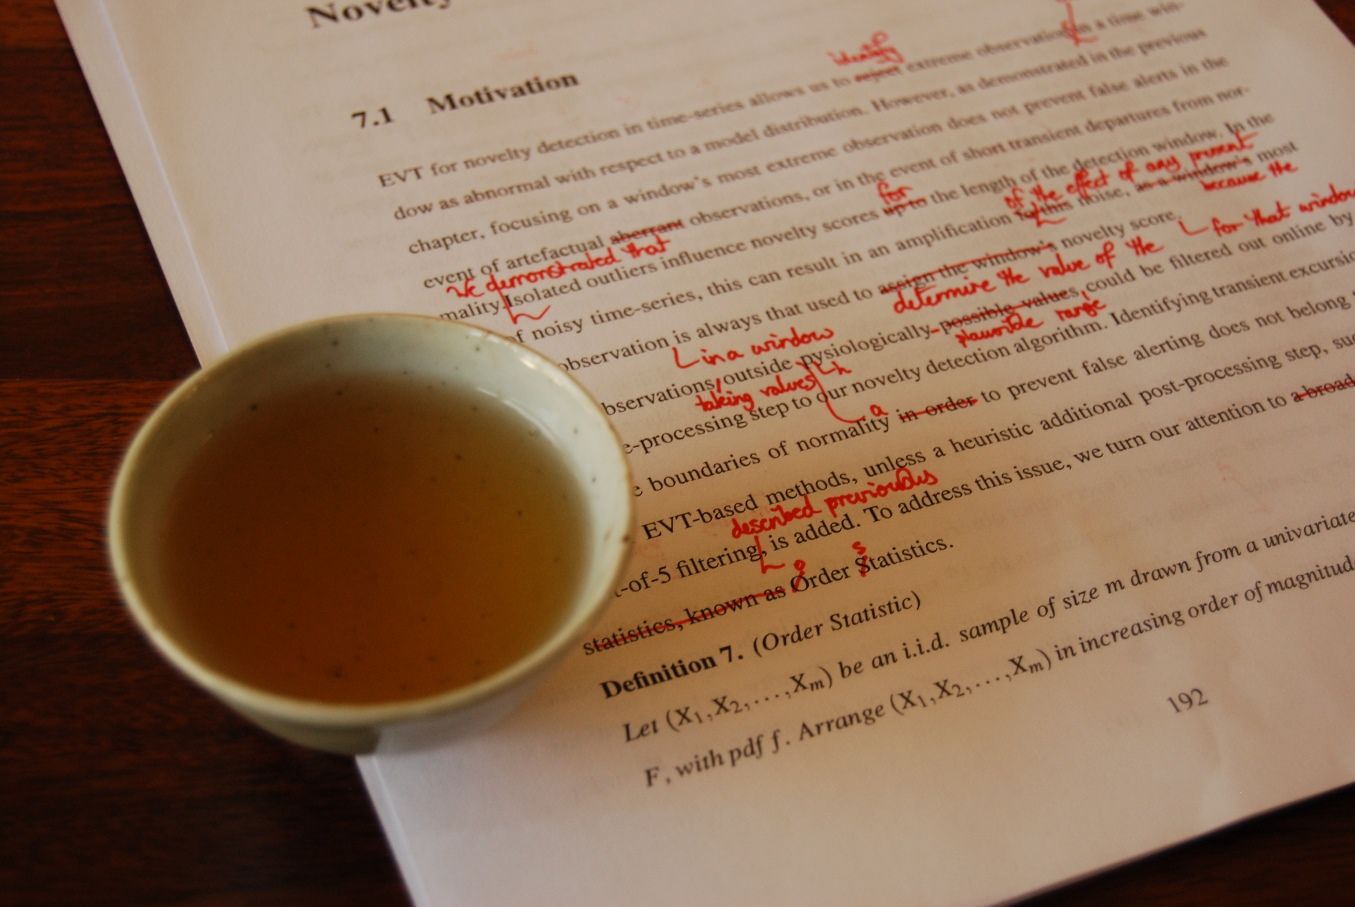 Novelty
7.1 Motivation
identify
EVT for novelty detection in time-series allows us to reject extreme observation in a time win-
dow as abnormal with respect to a model distribution. However, as demonstrated in the previous
chapter, focusing on a window's most extreme observation does not prevent false alerts in the
event of artefactual aberrant observations, or in the event of short transient departures from nor-
we demonstrated that
for
of the effect of any present
because the
mality. Isolated outliers influence novelty scores up to the length of the detection window. In the
of noisy time-series, this can result in an amplification noise, as a window's most
observation is always that used to assign the window's novelty score.
determine the value of the
for that window
in a window
bservations, outside pysiologically-possible values, could be filtered out online by
taking values
h
plausible range
e-processing step to our novelty detection algorithm. Identifying transient excursio
a
boundaries of normality in order to prevent false alerting does not belong
EVT-based methods, unless a heuristic additional post-processing step, suc
described previously
-of-5 filtering, is added. To address this issue, we turn our attention to a broad
o
s
statistics, known as Order Statistics.
Definition 7. (Order Statistic)
Let (X₁,X₂,...,Xₘ) be an i.i.d. sample of size m drawn from a univariate
F, with pdf f. Arrange (X₁,X₂,...,Xₘ) in increasing order of magnitud
192